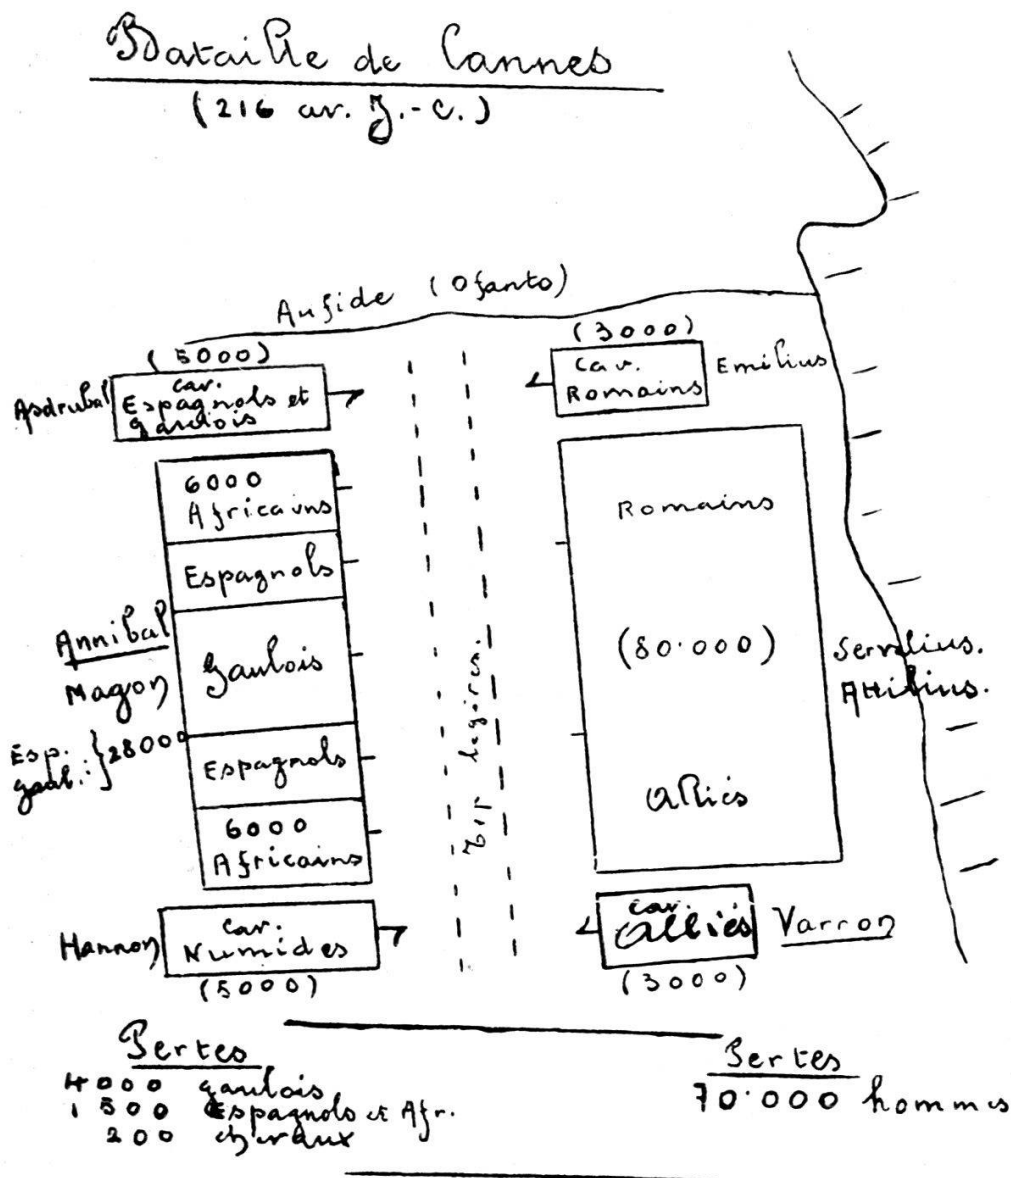 Bataille de Cannes
(216 av. J.-C.)
Aufide (Ofanto)
(5000)
(3000)
Asdrubal
cav.
Espagnols et
gaulois
cav.
Romains
Emilius
6000
Africains
Espagnols
Annibal
Magon
gaulois
Esp.
gaul.: } 28000
Espagnols
6000
Africains
Trp légères.
Romains
(80.000)
Alliés
Servilius.
Attilius.
Hannon
cav.
Numides
(5000)
cav.
Alliés
Varron
(3000)
Pertes
4000 gaulois
1500 Espagnols et Afr.
200 chevaux
Pertes
70.000 hommes